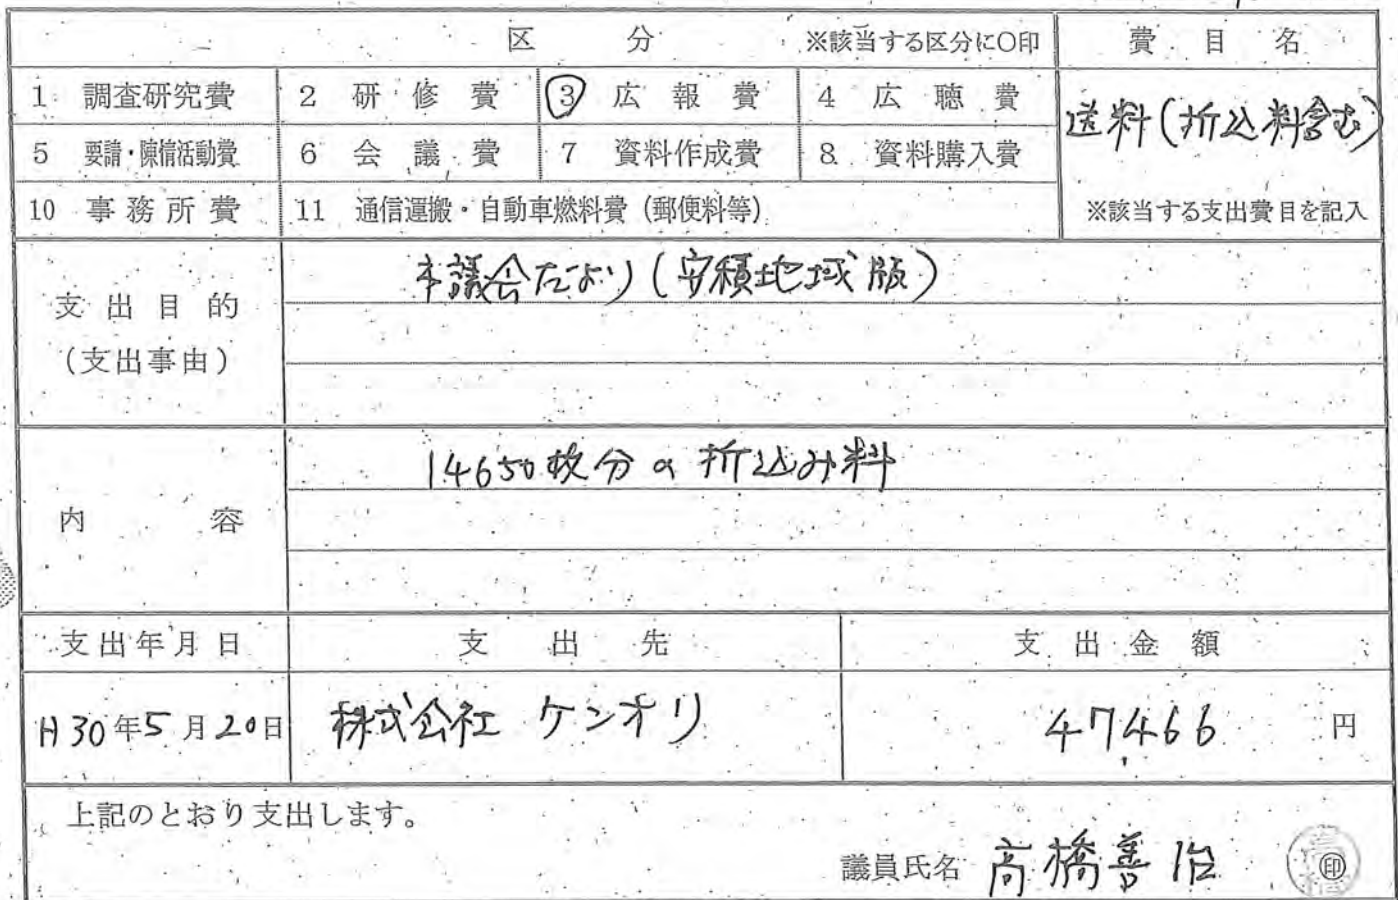 区 分 ※該当する区分に○印 費目名
1 調査研究費 2 研修費 ③ 広報費 4 広聴費
送料(折込料含む)
5 要請・陳情活動費 6 会議費 7 資料作成費 8 資料購入費
10 事務所費 11 通信運搬・自動車燃料費(郵便料等) ※該当する支出費目を記入
支出目的
(支出事由)
市議会だより(安積地域版)
内容
14650枚分の折込み料
支出年月日 支出先 支出金額
H30年5月20日 株式会社 ケンオリ 47466 円
上記のとおり支出します。
議員氏名 高橋善治 ㊞